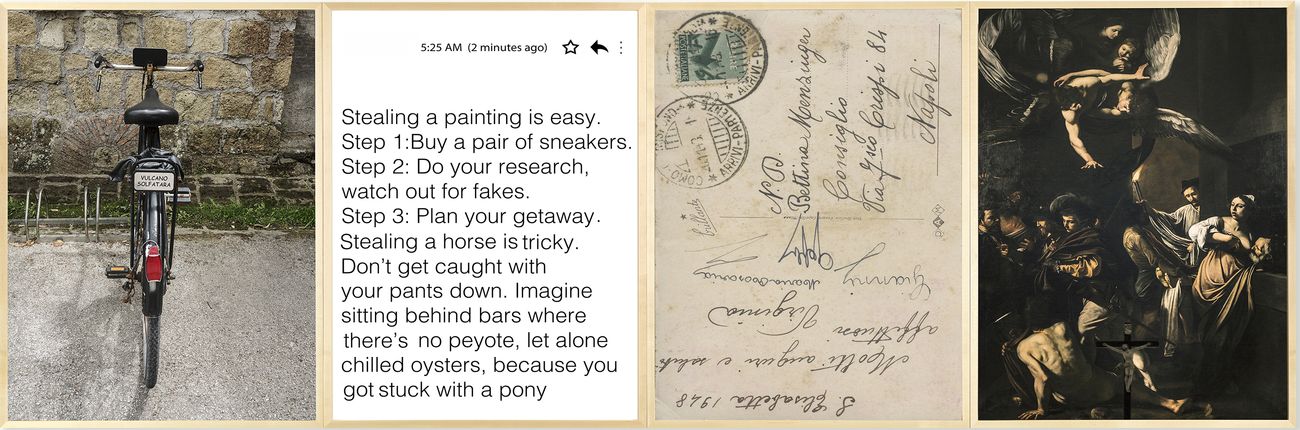 VULCANO
SOLFATARA
5:25 AM (2 minutes ago)
Stealing a painting is easy.
Step 1:Buy a pair of sneakers.
Step 2: Do your research,
watch out for fakes.
Step 3: Plan your getaway.
Stealing a horse is tricky.
Don't get caught with
your pants down. Imagine
sitting behind bars where
there's no peyote, let alone
chilled oysters, because you
got stuck with a pony
ARRIVI-PARTENZE
COMO
ARRIVI-PARTENZE
N. D.
Bettina Menzinger
Consiglio
Via Fsco Crispi 84
Napoli
brillante
S. Elisabetta 1948
Molti auguri e saluti
affettuosi Virginia
Gianny